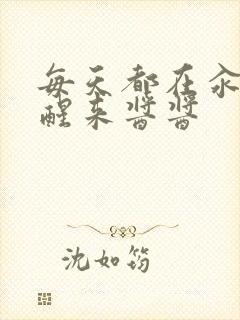 每天都在汆
醒来醬醬
沈如筠